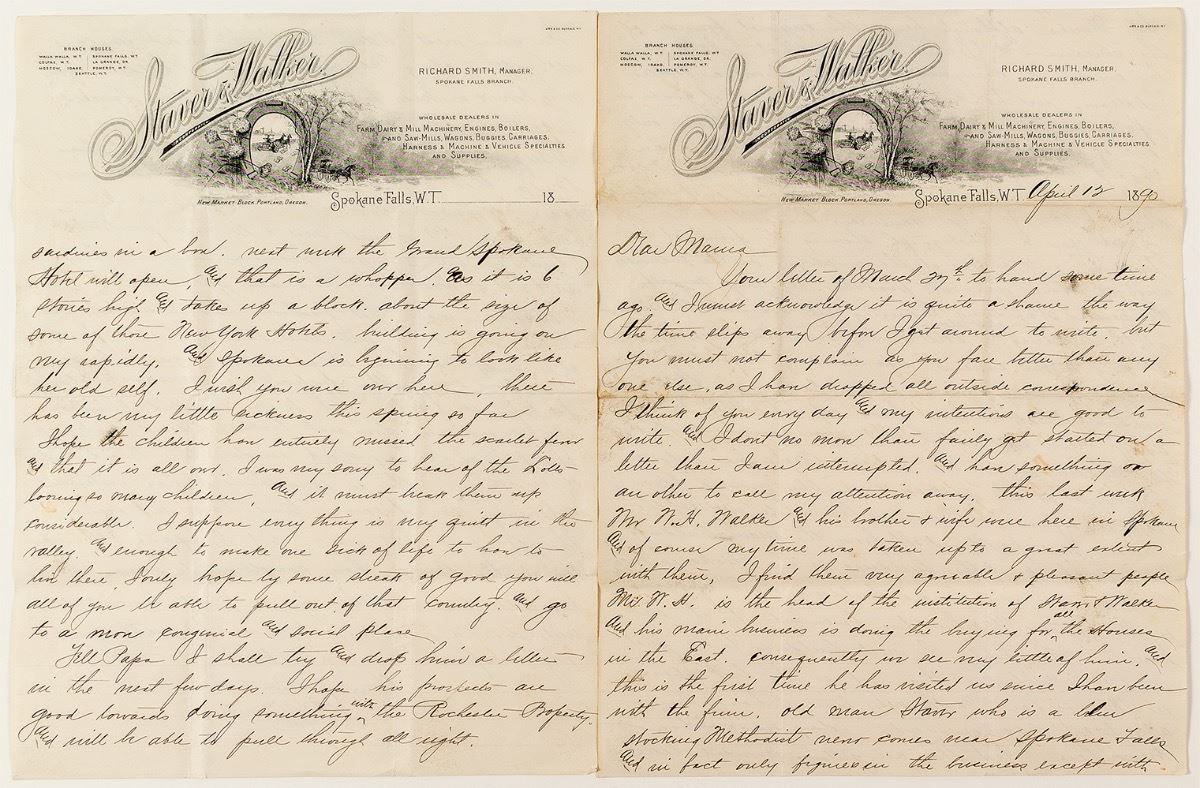 BRANCH HOUSES
WALLA WALLA, W.T. SPOKANE FALLS, W.T.
COLFAX, W.T. LA GRANDE, OR.
MOSCOW, IDAHO. POMEROY, W.T.
SEATTLE, W.T.
Staver & Walker
RICHARD SMITH, MANAGER.
SPOKANE FALLS BRANCH.
WHOLESALE DEALERS IN
FARM, DAIRY & MILL MACHINERY, ENGINES, BOILERS,
AND SAW-MILLS, WAGONS, BUGGIES, CARRIAGES.
HARNESS & MACHINE & VEHICLE SPECIALTIES
AND SUPPLIES.
NEW MARKET BLOCK, PORTLAND, OREGON.
Spokane Falls, W.T. 18
sardines in a box. next week the Grand Spokane
Hotel will open, and that is a whopper. as it is 6
stories high and takes up a block. about the size of
some of those New York Hotels. building is going on
very rapidly. and Spokane is beginning to look like
her old self. I wish you were over here, there
has been very little sickness this spring so far
I hope the children have entirely missed the scarlet fever
and that it is all over. I was very sorry to hear of the
loosing so many children, and it must break them up
considerable. I suppose everything is very quiet in the
valley. and enough to make one sick of life to have to
live there. I only hope by some streak of good you will
all of you be able to pull out of that country. and go
to a more congenial and social place
Tell Papa I shall try and drop him a letter
in the next few days. I hope his prospects are
good towards doing something with the Rochester Property.
and will be able to pull through all right.
BRANCH HOUSES
WALLA WALLA, W.T. SPOKANE FALLS, W.T.
COLFAX, W.T. LA GRANDE, OR.
MOSCOW, IDAHO. POMEROY, W.T.
SEATTLE, W.T.
Staver & Walker
RICHARD SMITH, MANAGER.
SPOKANE FALLS BRANCH.
WHOLESALE DEALERS IN
FARM, DAIRY & MILL MACHINERY, ENGINES, BOILERS,
AND SAW-MILLS, WAGONS, BUGGIES, CARRIAGES.
HARNESS & MACHINE & VEHICLE SPECIALTIES
AND SUPPLIES.
NEW MARKET BLOCK, PORTLAND, OREGON.
Spokane Falls, W.T. April 12 1890
Dear Mama
Your letter of March 27th to hand some time
ago. and I must acknowledge it is quite a shame the way
the time slips away before I get around to write. but
you must not complain as you fare better than any
one else, as I have dropped all outside correspondence
I think of you every day and my intentions are good to
write. and I dont no more than fairly get started on a
letter than I am interrupted. and have something or
an other to call my attention away. this last week
Mr W.H. Walker and his brother & wife were here in Spokane
and of course my time was taken up to a great extent
with them, I find them very agreeable & pleasant people
Mr. W.H. is the head of the institution of Staver & Walker
and his main business is doing the buying for all the Houses
in the East. consequently we see very little of him. and
this is the first time he has visited us since I have been
with the firm. old man Staver who is a blue
stocking Methodist never comes near Spokane Falls
and in fact only figures in the business except with